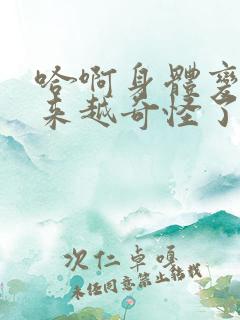 哈啊身體變
来越奇怪了
次仁卓嘎
未经同意禁止转载